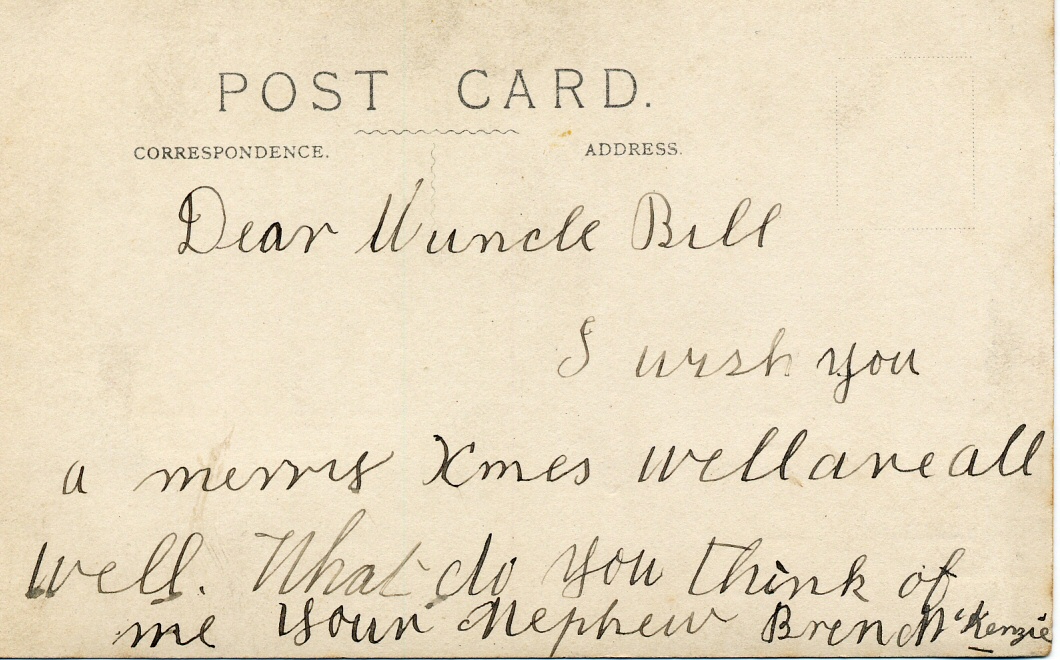 POST CARD.
CORRESPONDENCE. ADDRESS.
Dear Uuncle Bill
I wish you
a merry Xmes well are all
well. What do you think of
me your Nephew Bren McKenzie